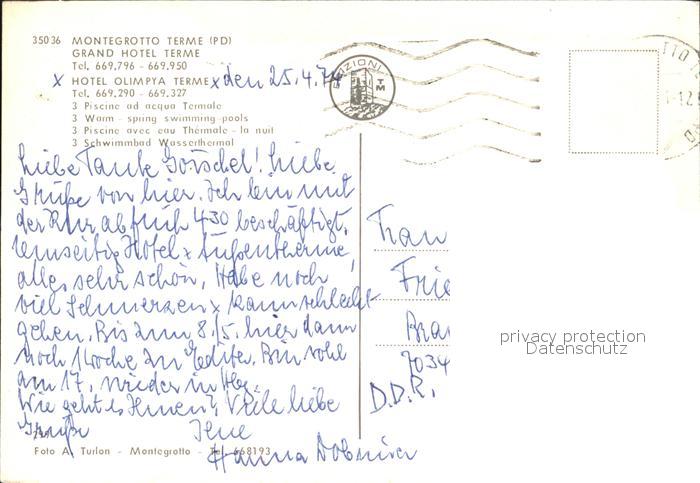 35036 MONTEGROTTO TERME (PD)
GRAND HOTEL TERME
Tel. 669.796 - 669.950
x HOTEL OLIMPYA TERME x den 25.4.74
Tel. 669.290 - 669.327
3 Piscine ad acqua Termale
3 Warm - spring swimming-pools
3 Piscines avec eau Thérmale - la nuit
3 Schwimmbad Wasserthermal
EDIZIONI
TM
Liebe Tante Liebe
Grüße von hier. Ich bin mit
der Kur ab früh 430 beschäftigt,
Hotel x Außentherme,
alles sehr schön, habe noch
viel Schmerzen x kann schlecht
gehen. Bis zum 8./5. hier dann
noch 1 Woche zu Bin wohl
am 17. wieder in Hbg.
Wie geht es Ihnen? Viele liebe
Grüße Ihre
Hanna
Foto A. Turlon - Montegrotto - Tel. 668193
Frau
Frie
Bra
7034
D.D.R.
privacy protection
Datenschutz